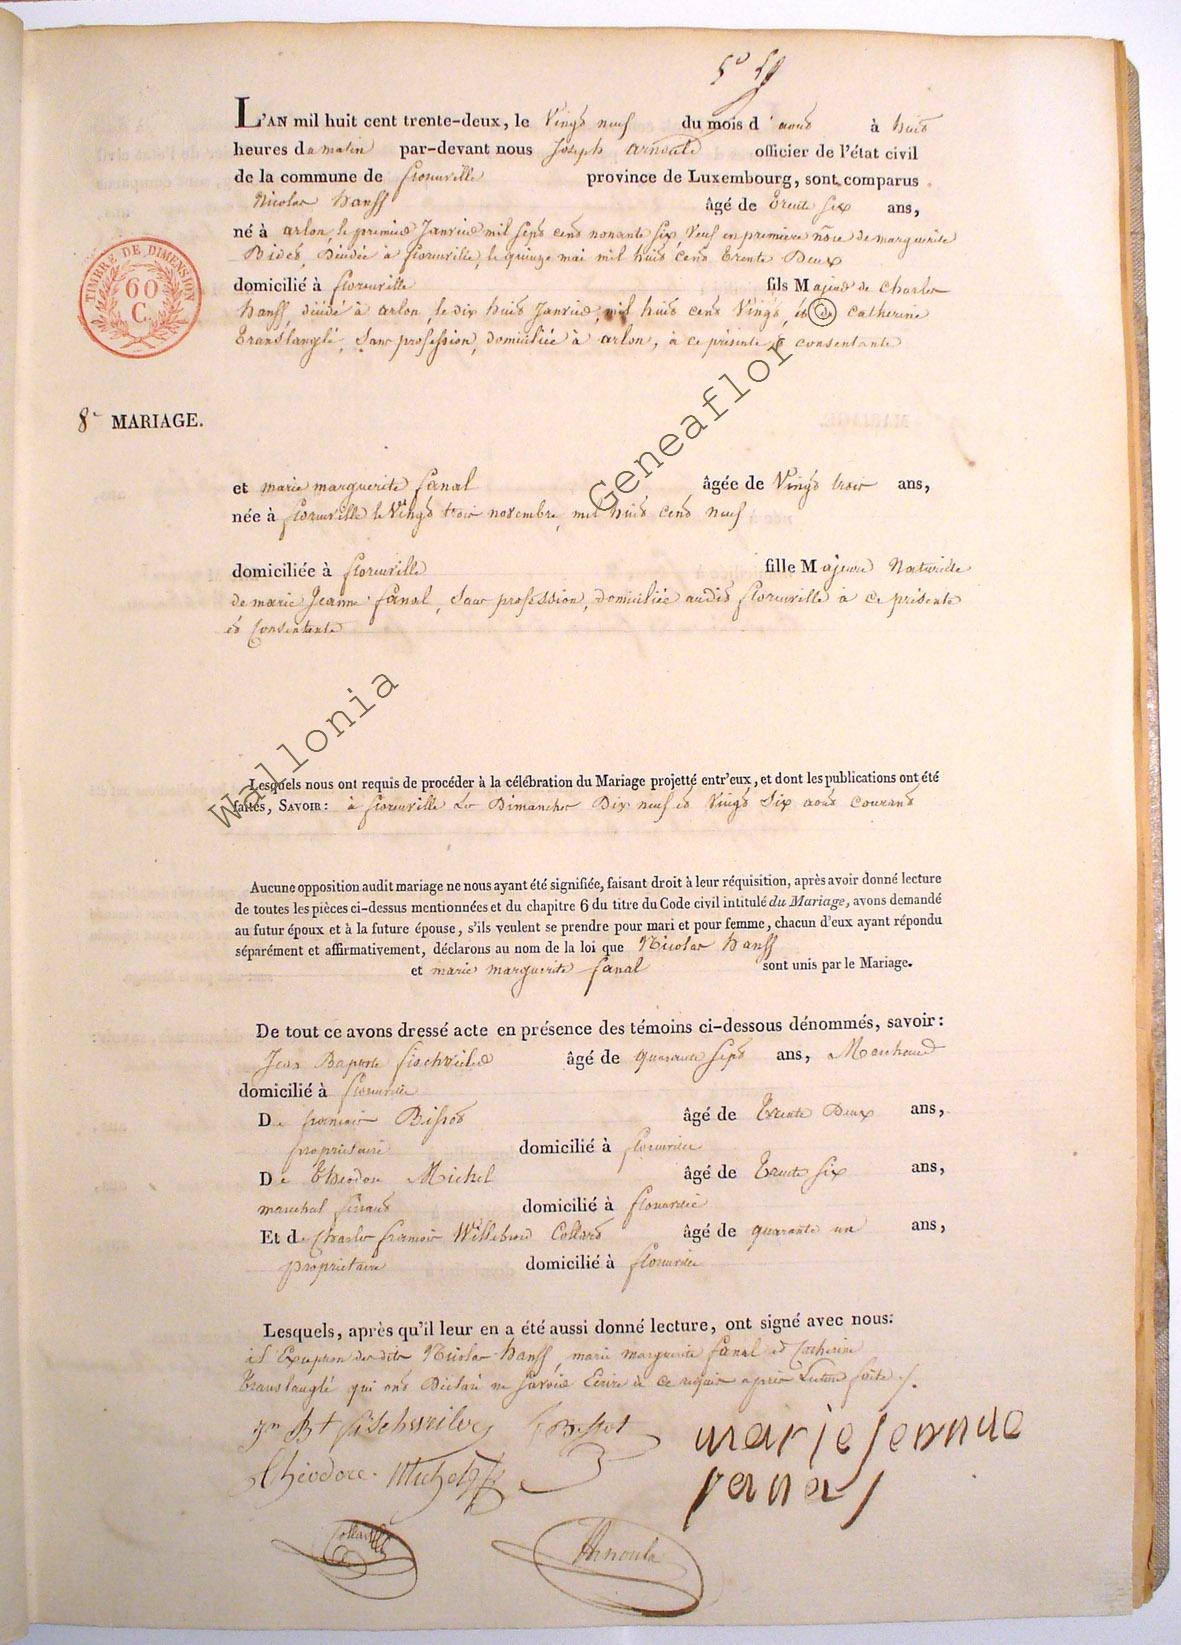 L'AN mil huit cent trente-deux, le Vingt neuf du mois d'aout à huit
heures du matin par-devant nous Joseph arnould officier de l'état civil
de la commune de florenville province de Luxembourg, sont comparus
Nicolas hanff âgé de trente six ans,
né à arlon, le premier Janvier mil sept cent nonante six, Veuf en première nôce de marguerite
décédée à florenville, le quinze mai mil huit cent trente Deux
TIMBRE DE DIMENSION
60
C.
domicilié à florenville fils Majeur de Charles
hanff, décédé à arlon, le dix huit Janvier, mil huit cent Vingt, et de Catherine
Translanglé, Sans profession, domiciliée à arlon, à ce présente & consentante
8e MARIAGE.
et marie marguerite fanal âgée de Vingt trois ans,
née à florenville le Vingt trois novembre, mil huit cent neuf
domiciliée à florenville fille Majeure Naturelle
de marie Jeanne fanal, Sans profession, domiciliée audit florenville à ce présente
et Consentente
Lesquels nous ont requis de procéder à la célébration du Mariage projetté entr'eux, et dont les publications ont été
faites, SAVOIR : à florenville Les Dimanches Dix neuf et Vingt Six aout courant
Aucune opposition audit mariage ne nous ayant été signifiée, faisant droit à leur réquisition, après avoir donné lecture
de toutes les pièces ci-dessus mentionnées et du chapitre 6 du titre du Code civil intitulé du Mariage, avons demandé
au futur époux et à la future épouse, s'ils veulent se prendre pour mari et pour femme, chacun d'eux ayant répondu
séparément et affirmativement, déclarons au nom de la loi que Nicolas hanff
et marie marguerite fanal sont unis par le Mariage.
De tout ce avons dressé acte en présence des témoins ci-dessous dénommés, savoir :
Jean Baptiste fischweiler âgé de quarante sept ans, Marchand
domicilié à florenville
De françois Bissot âgé de trente Deux ans,
propriétaire domicilié à florenville
De théodore Michel âgé de trente six ans,
marechal ferrant domicilié à florenville
Et de Charles françois Willebrord Collard âgé de quarante un ans,
propriétaire domicilié à florenville
Lesquels, après qu'il leur en a été aussi donné lecture, ont signé avec nous :
à l'Exception desdits Nicolas hanff, marie marguerite fanal et Catherine
translanglé qui ont Déclaré ne Savoir Ecrire de ce requis après Lecture faite
Jn Bt fischweiler Bissot marie Jennne
Théodore Michel fanal
Collard Arnould
wallonia Geneaflor
©